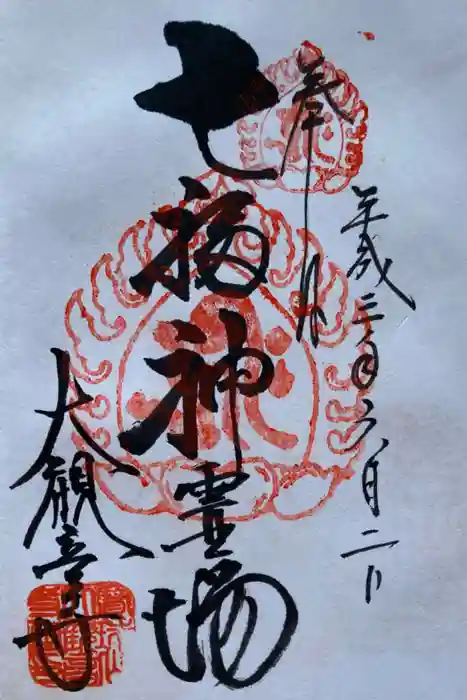 奉拝
平成三年六月二日
七福神霊場
大観音寺